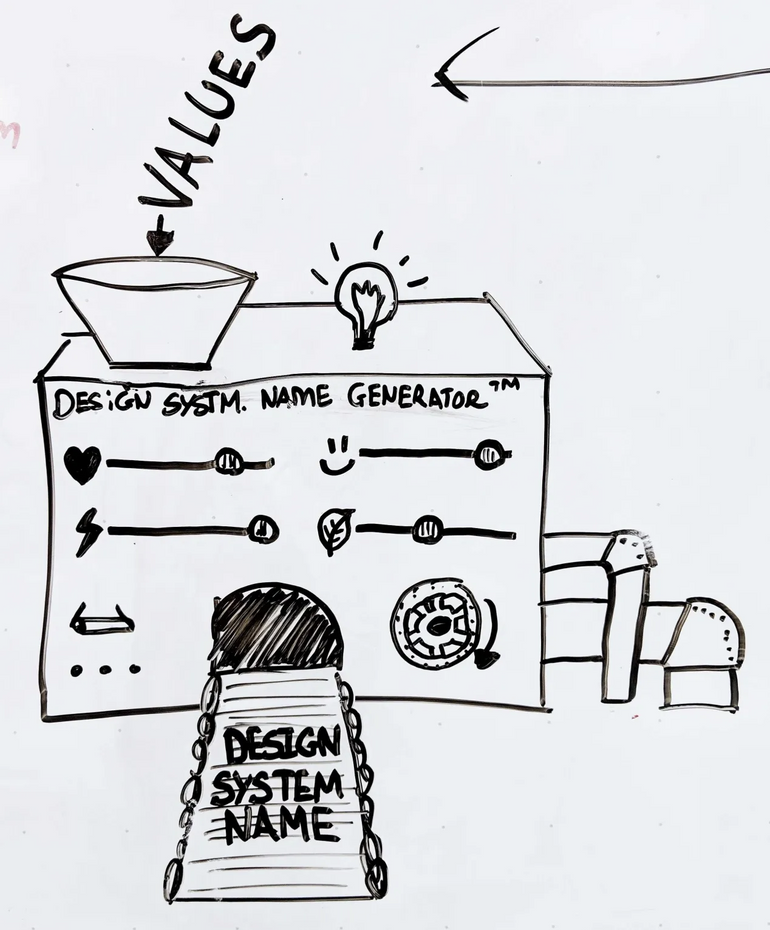 VALUES
DESiGN SYSTM. NAME GENERATOR™
DESIGN
SYSTEM
NAME